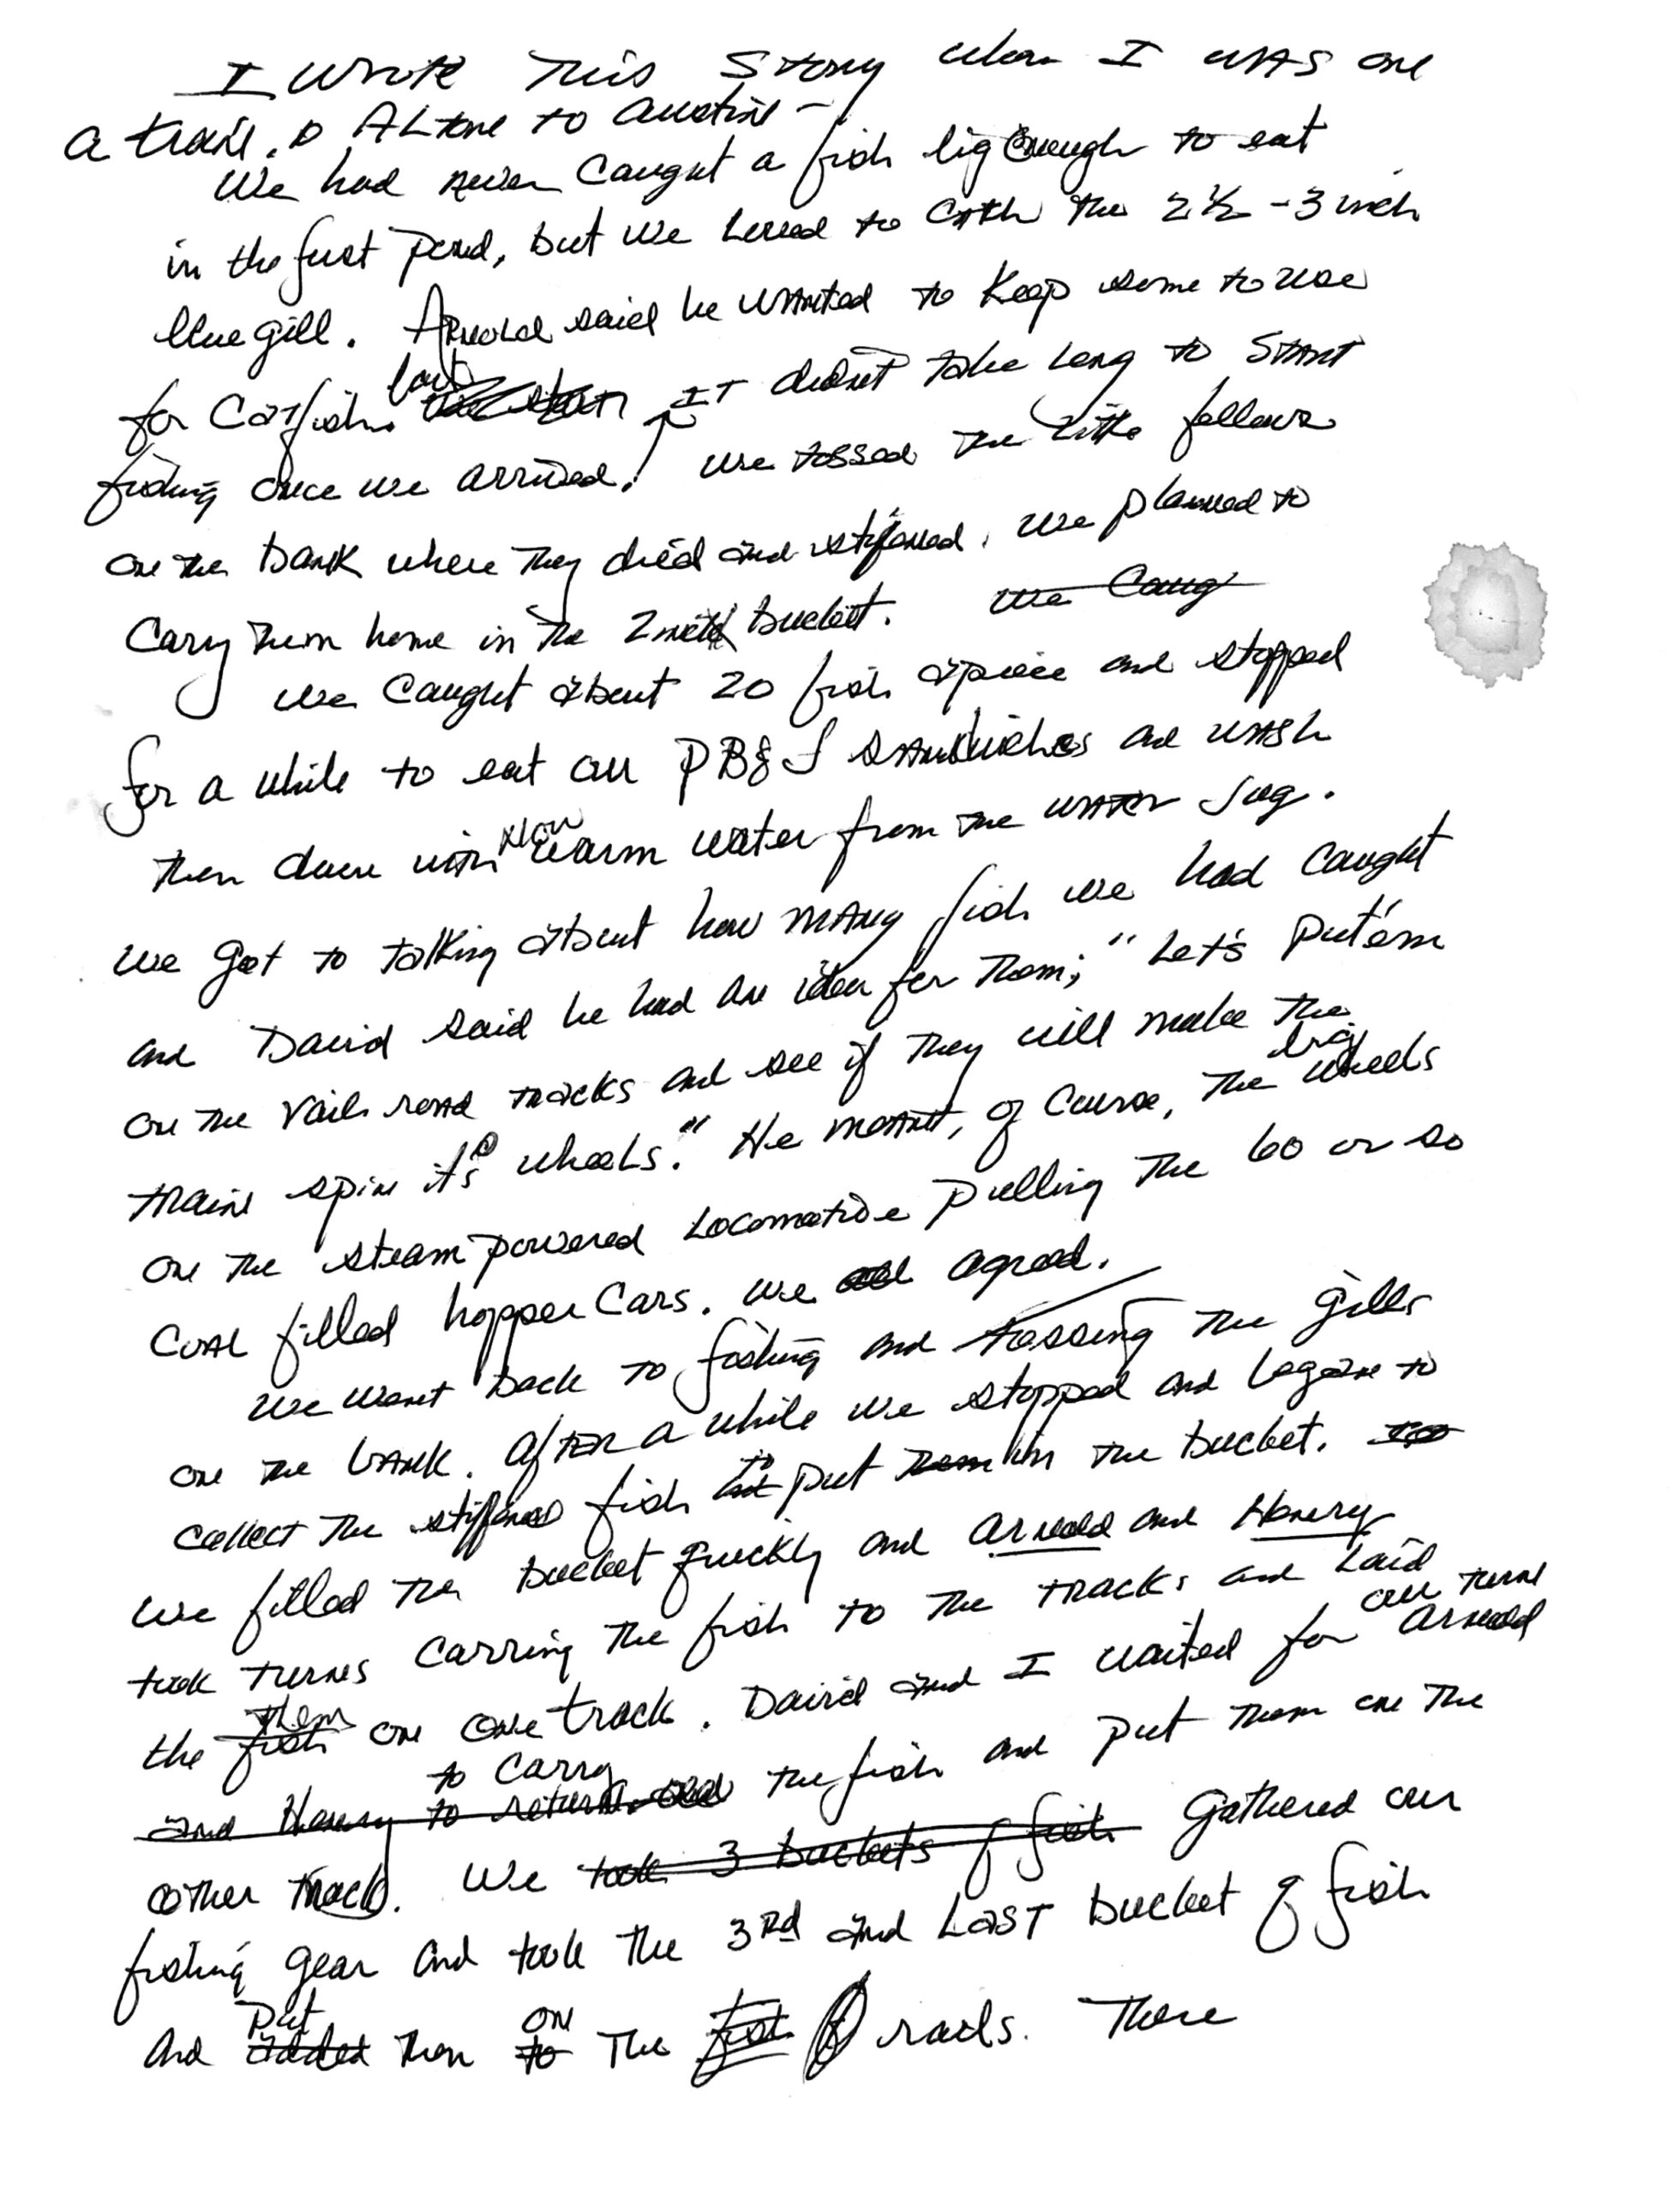 I wrote This Story when I was on
a train. Altone to Austin -
We had never caught a fish big enough to eat
in the first pond, but we loved to catch the 2½ - 3 inch
blue gill. Arnold said he wanted to keep some to use
for Catfish bait. It didn't take long to start
fishing once we arrived. We tossed the little fellows
on the bank where they died and stiffened. We planned to
Cary them home in the bucket. We Caug
We caught about 20 fish apiece and stopped
for a while to eat our PB&J sandwiches and wash
them down with Now warm water from the water jug.
We got to talking about how many fish we had caught
and David said he had an idea for them; "Let's put 'em
on the rail road tracks and see if they will make the
train spin it's wheels." He meant, of course, the big wheels
on the steam powered locomotive pulling the 60 or so
coal filled hopper cars. We all agreed.
We went back to fishing and tossing the gills
on the bank. After a while we stopped and began to
collect the stiffened fish to put them in the bucket.
We filled the bucket quickly and Arnold and Henery
took turns carring the fish to the tracks and laid
the fish them on one track. David and I waited for our turn Arnold
and Henery to return to carry the fish and put them on the
other track. We took 3 buckets of fish gathered our
fishing gear and took the 3rd and last bucket of fish
and added put them to on the first rails. There